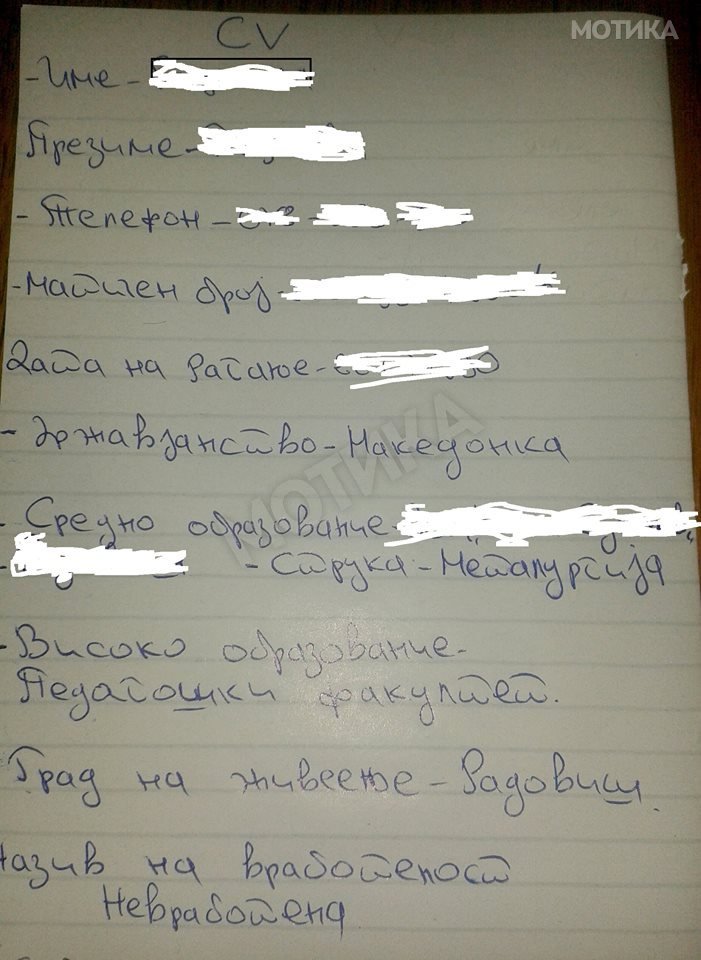 МОТИКА
CV
- Име -
Презиме -
- Телефон -
- Матичен број -
Дата на Раѓање -
- Државјанство - Македонка
МОТИКА
- Средно образование -
- Струка - Металургија
- Високо образование -
Педагошки факултет.
Град на живеење - Радовиш.
Назив на вработеност
Невработена